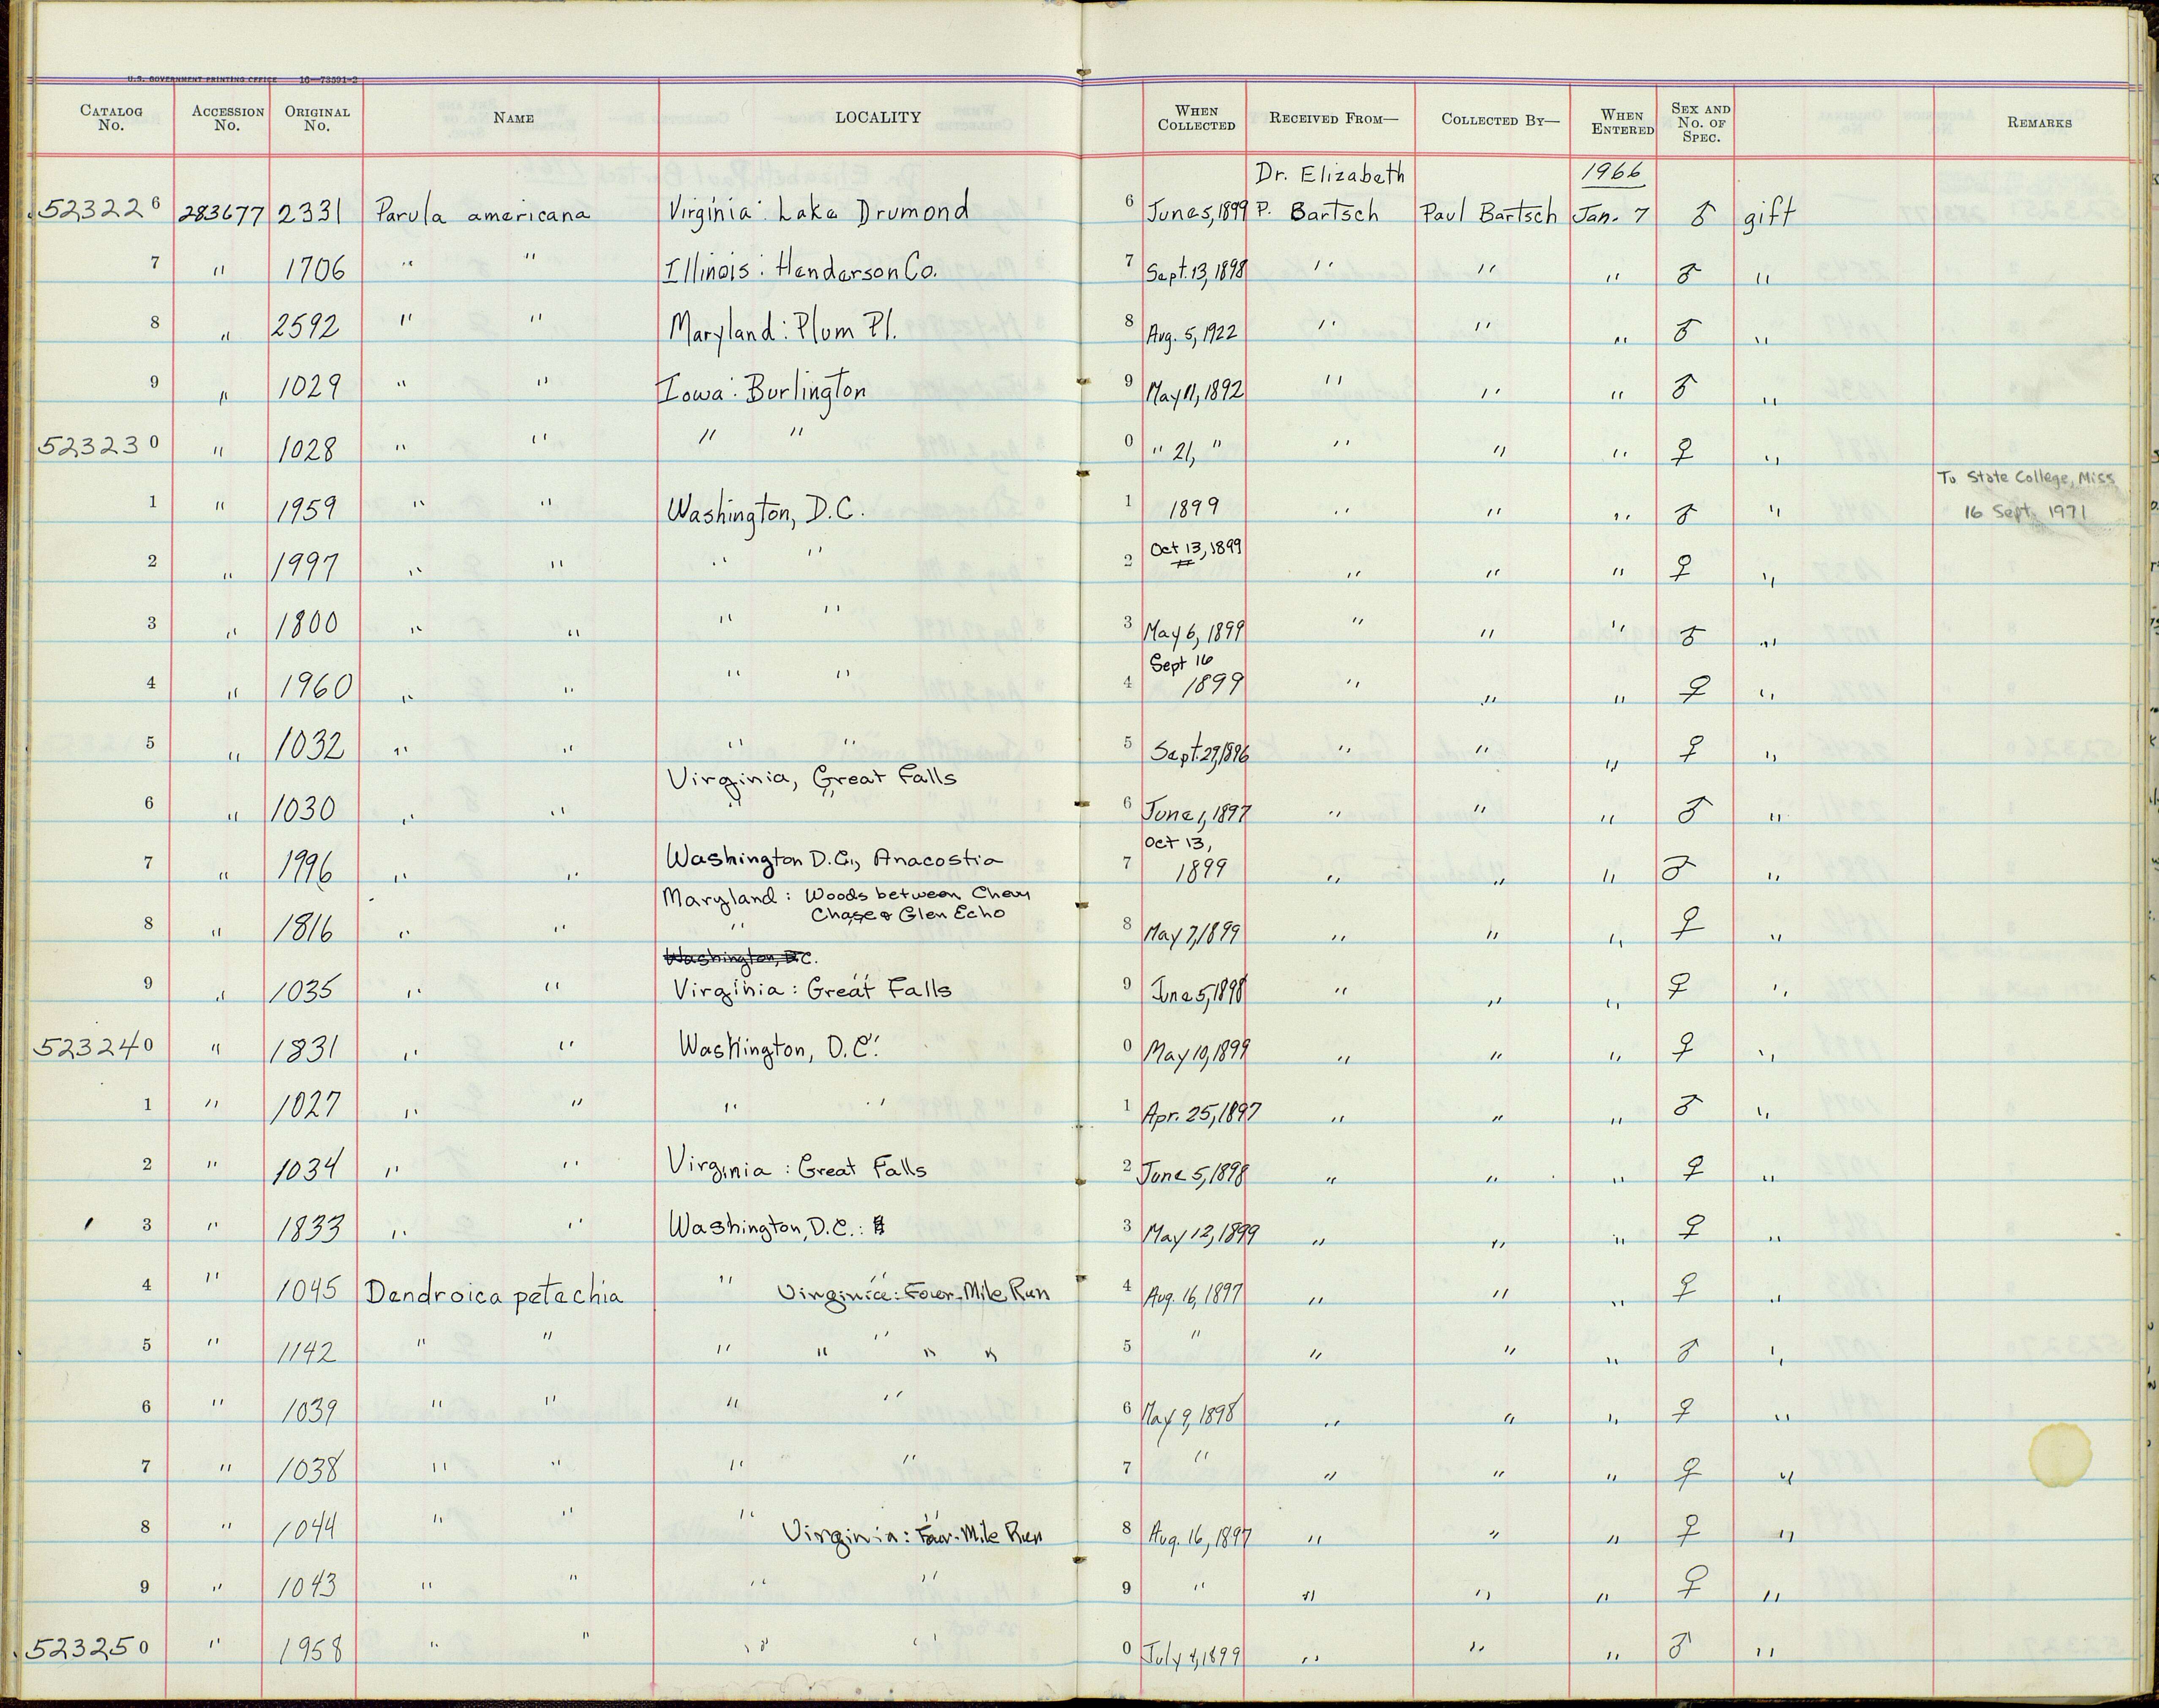 U.S. GOVERNMENT PRINTING OFFICE 16—73591-2
CATALOG No. ACCESSION No. ORIGINAL No. NAME LOCALITY WHEN COLLECTED RECEIVED FROM— COLLECTED BY— WHEN ENTERED SEX AND No. OF SPEC. REMARKS
Dr. Elizabeth 1966
523226 283677 2331 Parula americana Virginia: Lake Drumond 6 June 5, 1899 P. Bartsch Paul Bartsch Jan. 7 ♂ gift
7 " 1706 " " Illinois: Henderson Co. 7 Sept. 13, 1898 " " " ♂ "
8 " 2592 " " Maryland: Plum Pt. 8 Aug. 5, 1922 " " " ♂ "
9 " 1029 " " Iowa: Burlington 9 May 11, 1892 " " " ♂ "
523230 " 1028 " " " " 0 " 21, " " " " ♀ "
1 " 1959 " " Washington, D.C. 1 1899 " " " ♂ " To State College, Miss 16 Sept. 1971
2 " 1997 " " " " 2 Oct 13, 1899 " " " ♀ "
3 " 1800 " " " " 3 May 6, 1899 " " " ♂ "
4 " 1960 " " " " 4 Sept 16 1899 " " " ♀ "
5 " 1032 " " " " 5 Sept. 27, 1896 " " " ♀ "
6 " 1030 " " Virginia, Great Falls " " 6 June 1, 1897 " " " ♂ "
7 " 1996 " " Washington D.C., Anacostia 7 Oct 13, 1899 " " " ♂ "
8 " 1816 " " Maryland: Woods between Chevy Chase & Glen Echo " " 8 May 7, 1899 " " " ♀ "
Washington, D.C.
9 " 1035 " " Virginia: Great Falls 9 June 5, 1898 " " " ♀ "
523240 " 1831 " " Washington, D.C. 0 May 10, 1899 " " " ♀ "
1 " 1027 " " " " 1 Apr. 25, 1897 " " " ♂ "
2 " 1034 " " Virginia: Great Falls 2 June 5, 1898 " " " ♀ "
3 " 1833 " " Washington, D.C.: 3 May 12, 1899 " " " ♀ "
4 " 1045 Dendroica petechia " " Virginia: Four-Mile Run 4 Aug. 16, 1897 " " " ♀ "
5 " 1142 " " " " " " " 5 " " " " ♂ "
6 " 1039 " " " " 6 May 9, 1898 " " " ♀ "
7 " 1038 " " " " 7 " " " " ♀ "
8 " 1044 " " " " Virginia: Four-Mile Run 8 Aug. 16, 1897 " " " ♀ "
9 " 1043 " " " " 9 " " " " ♀ "
523250 " 1958 " " " " 0 July 4, 1899 " " " ♂ "